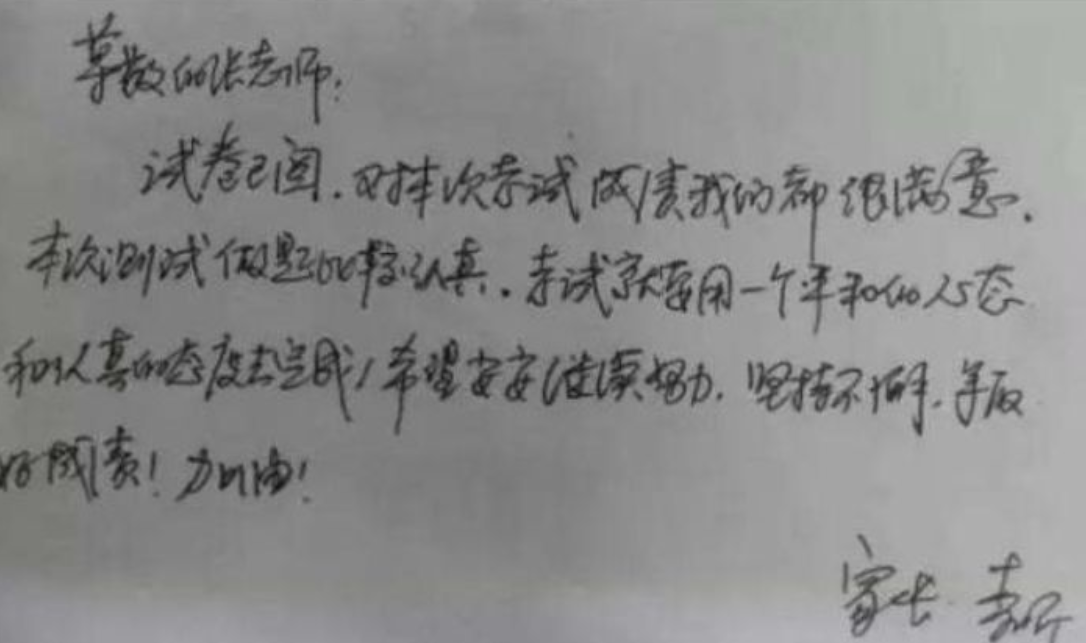 尊敬的张老师:
试卷已阅.对本次考试成绩我们都很满意.
本次测试做题比较认真.考试就要用一个平和的心态
和认真的态度去完成,希望安安继续努力.坚持不懈.争取
好成绩!加油!
家长